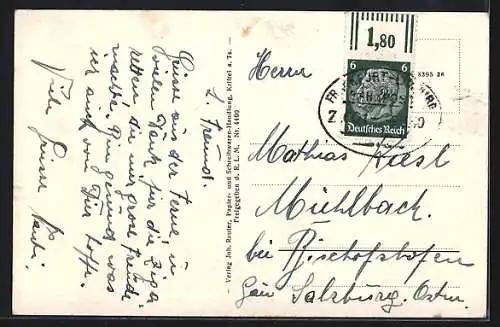 L. Freund!
Grüsse aus der Ferne u.
vielen Dank für die Ziga-
retten die mir grosse Freude
machte. Bin gesund was
ich auch von Dir hoffe.
Viele Grüsse
Verlag Joh. Reuter, Papier- und Schreibwaren-Handlung, Kriftel a. Ts.
Freigegeben d. R.L.M. Nr. 4460
1,80
6 6
Deutsches Reich
8395 26
Herrn
Mathias
Mühlbach.
bei Bischofshofen
Gau Salzburg. Ostm.